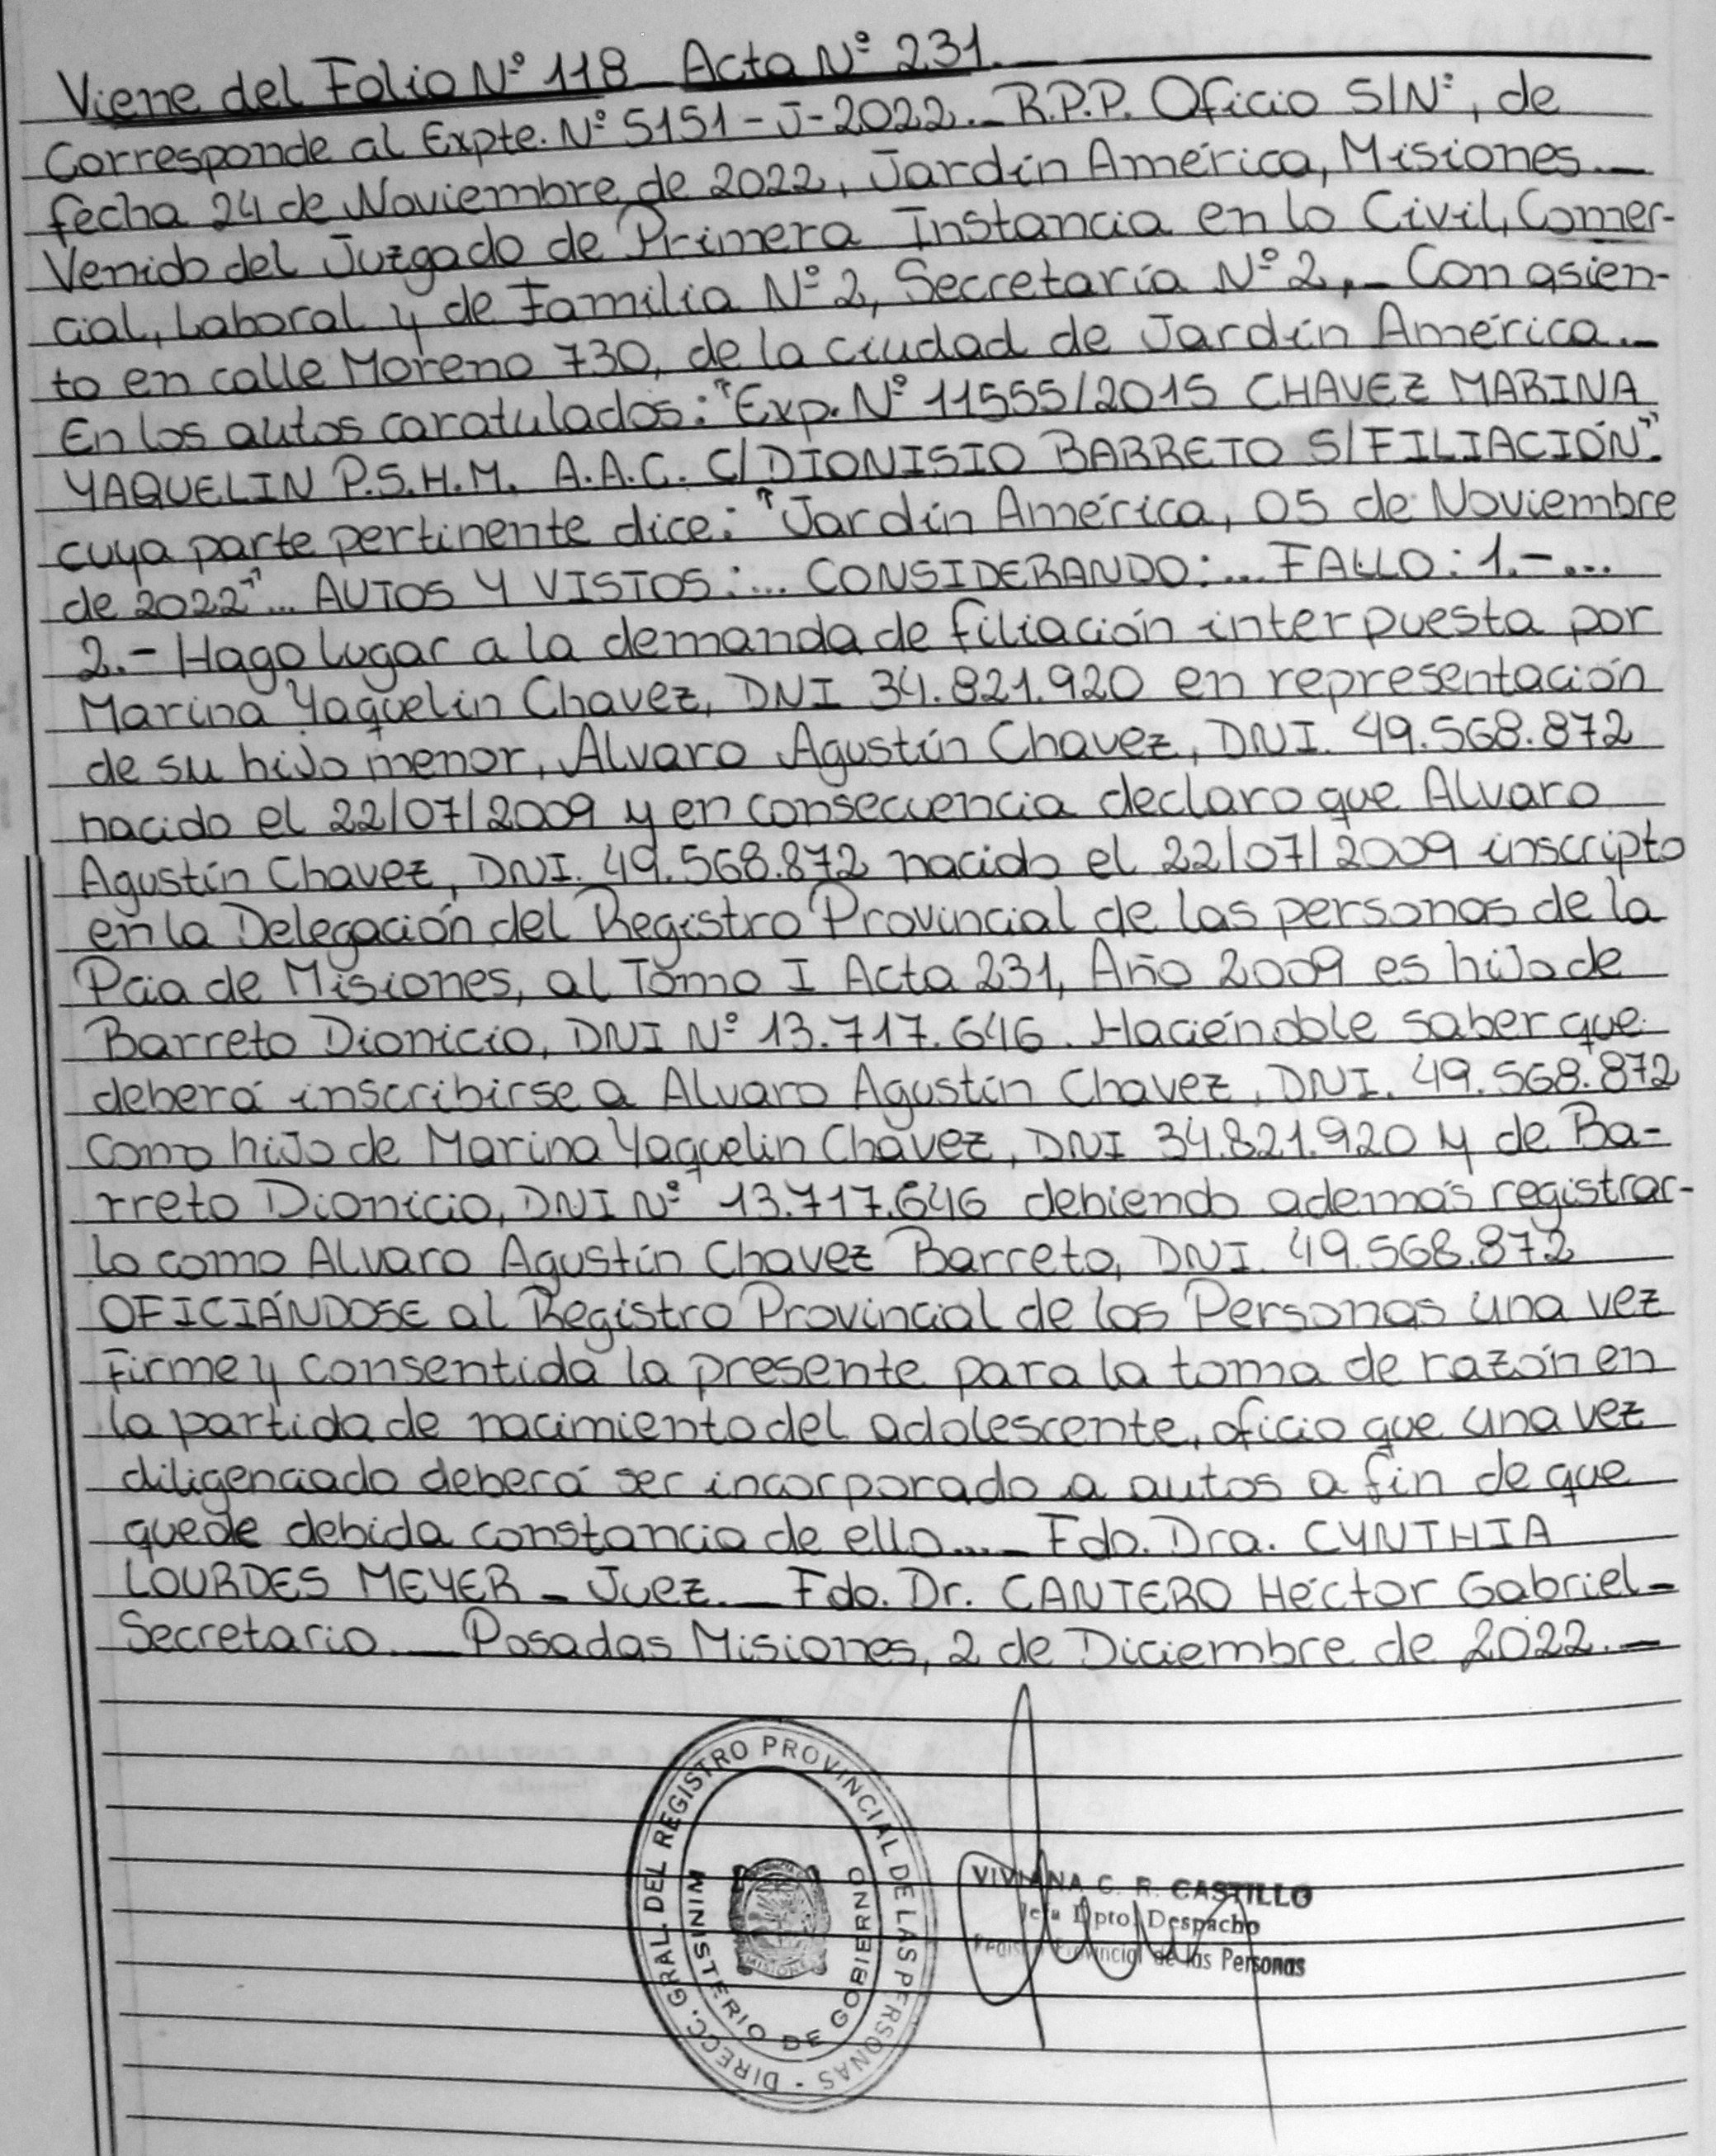 Viene del Folio Nº 118 Acta Nº 231.
Corresponde al Expte. Nº 5151-J-2022._ R.P.P. Oficio S/Nº, de
fecha 24 de Noviembre de 2022, Jardín América, Misiones._
Venido del Juzgado de Primera Instancia en lo Civil, Comer-
cial, Laboral y de Familia Nº 2, Secretaría Nº 2,_ Con asien-
to en calle Moreno 730, de la ciudad de Jardín América._
En los autos caratulados: "Exp. Nº 11555/2015 CHAVEZ MARINA
YAQUELIN P.S.H.M. A.A.C. C/DIONISIO BARRETO S/FILIACIÓN".
cuya parte pertinente dice: "Jardín América, 05 de Noviembre
de 2022"... AUTOS Y VISTOS:... CONSIDERANDO:... FALLO: 1.-...
2.- Hago lugar a la demanda de filiación interpuesta por
Marina Yaquelin Chavez, DNI 34.821.920 en representación
de su hijo menor, Alvaro Agustín Chavez, DNI. 49.568.872
nacido el 22/07/2009 y en consecuencia declaro que Alvaro
Agustín Chavez, DNI. 49.568.872 nacido el 22/07/2009 inscripto
en la Delegación del Registro Provincial de las personas de la
Pcia de Misiones, al Tomo I Acta 231, Año 2009 es hijo de
Barreto Dionicio, DNI Nº 13.717.646. Haciéndole saber que
deberá inscribirse a Alvaro Agustín Chavez, DNI. 49.568.872
como hijo de Marina Yaquelin Chávez, DNI 34.821.920 y de Ba-
rreto Dionicio, DNI Nº 13.717.646 debiendo además registrar-
lo como Alvaro Agustín Chavez Barreto, DNI. 49.568.872
OFICIÁNDOSE al Registro Provincial de las Personas una vez
Firme y consentida la presente para la toma de razón en
la partida de nacimiento del adolescente, oficio que una vez
diligenciado deberá ser incorporado a autos a fin de que
quede debida constancia de ello...._ Fdo. Dra. CYNTHIA
LOURDES MEYER - Juez._ Fdo. Dr. CANTERO Héctor Gabriel-
Secretario._ Posadas Misiones, 2 de Diciembre de 2022._
DIRECC. GRAL. DEL REGISTRO PROVINCIAL DE LAS PERSONAS -
MINISTERIO DE GOBIERNO
MISIONES
VIVIANA C. R. CASTILLO
Jefa Dpto. Despacho
Registro Provincial de las Personas